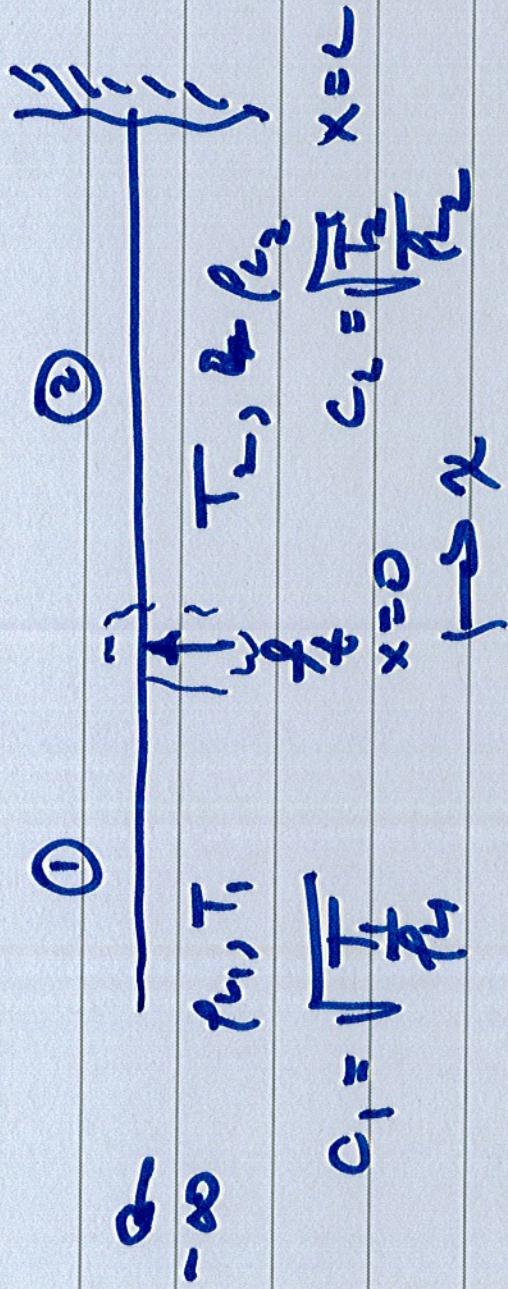 ① ②
-∞ ρ_L1, T_1 T_2, & ρ_L2
C_1 = √(T_1/ρ_L1) x=0 C_2 = √(T_2/ρ_L2) x=L
x